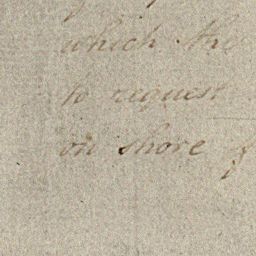 which the
to request
on shore